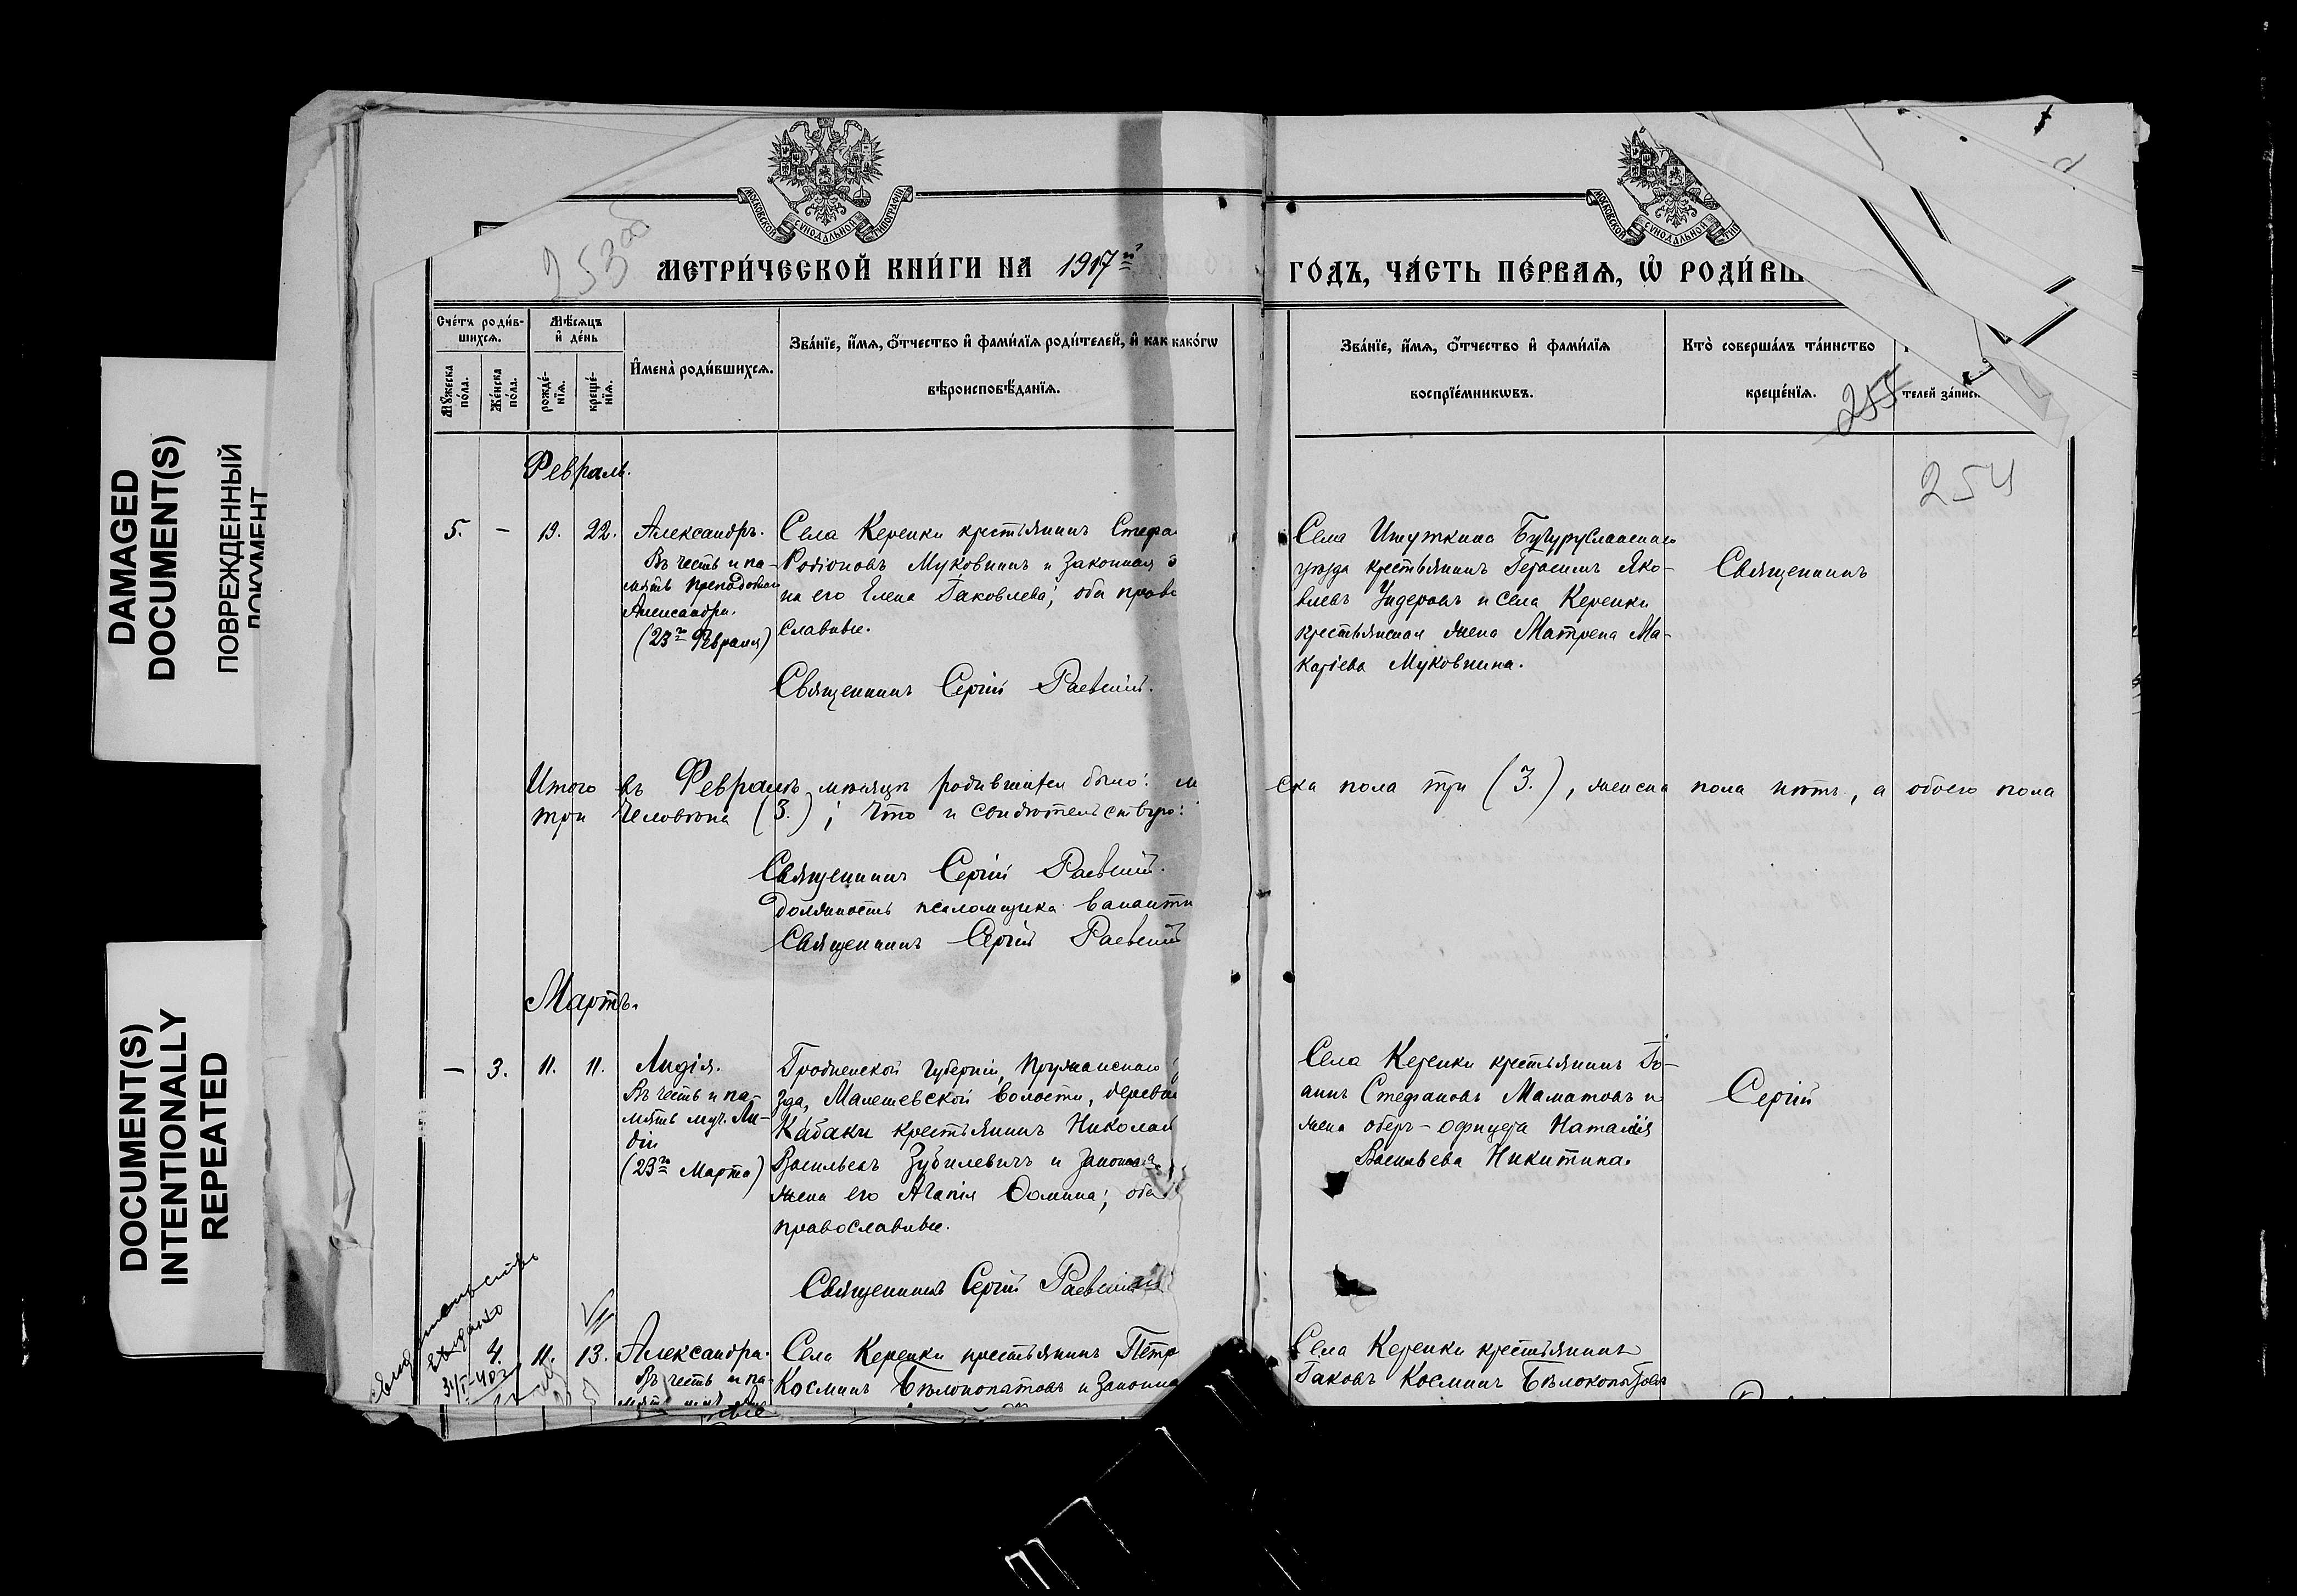 DAMAGED
DOCUMENT(S)
ПОВРЕЖДЕННЫЙ
ДОКУМЕНТ
DOCUMENT(S)
INTENTIONALLY
REPEATED
МОСКОВСКОЙ СУНОДАЛЬНОЙ ТИПОГРАФІИ
МОСКОВСКОЙ СУНОДАЛЬНОЙ ТИ
253об
МЕТРИ́ЧЕСКОЙ КНИ́ГИ НА 1917й
ГО́ДЪ, ЧА́СТЬ ПЕ́РВАЯ, Ѡ҆ РОДИ́ВШ
Сче́тъ роди́в-
шихся.
Мѣ́сяцъ
и҆ де́нь
Му́жеска
по́ла.
Же́нска
по́ла.
рожде́-
нїя.
креще́-
нїя.
И҆мена̀ роди́вшихся.
Зва́нїе, и҆́мя, ѻ҆́тчество и҆ фами́лїя роди́телей, и҆ как како́гѡ
вѣроисповѣ́данїя.
Зва́нїе, и҆́мя, ѻ҆́тчество и҆ фами́лїя
воспрїе́мникѡвъ.
Кто̀ соверша́лъ та́инство
креще́нїя.
телей за́писи
255
254
Февраль.
5. – 19. 22. Александръ.
Въ честь и па-
мять преподобнаго
Александра.
(23го Февраля)
Села Керенки крестьянинъ Стефа
Родіоновъ Муковнинъ и законная ж
на его Елена Іаковлева; оба право
славные.
Священникъ Сергій Раевскій.
Села Ишуткино Бугурусланскаго
уѣзда крестьянинъ Герасимъ Яко-
влевъ Ундеровъ и села Керенки
крестьянская жена Матрена Ма-
каріева Муковнина.
Священникъ
Итого въ Февралѣ мѣсяцѣ родившихся было: м
ска пола три (3.), женска пола нѣтъ, а обоего пола
три человѣка (3.); что и свидѣтельствую:
Священникъ Сергій Раевскій.
Должность псаломщика вакантн
Священникъ Сергій Раевскій
Мартъ.
– 3. 11. 11. Лидія.
Въ честь и па-
мять муч. Ли-
діи
(23го Марта)
Гродненской губерніи, Пружанскаго у
зда, Малешевской волости, деревни
Кабаки крестьянинъ Николай
Васильевъ Зубилевичъ и законная
жена его Агапія Ѳомина; оба
православные.
Священникъ Сергій Раевскій
Села Керенки крестьянинъ Іо-
аннъ Стефановъ Маматовъ и
жена оберъ-офицера Наталія
Васильева Никитина.
Сергій
Свидетельство
выдано
31/I-40г
4. 11. 13. Александра.
Въ честь и па-
Села Керенки крестьянинъ Петр
Косминъ Бѣлокопытовъ и законна
Села Керенки крестьянинъ
Іаковъ Косминъ Бѣлокопытовъ